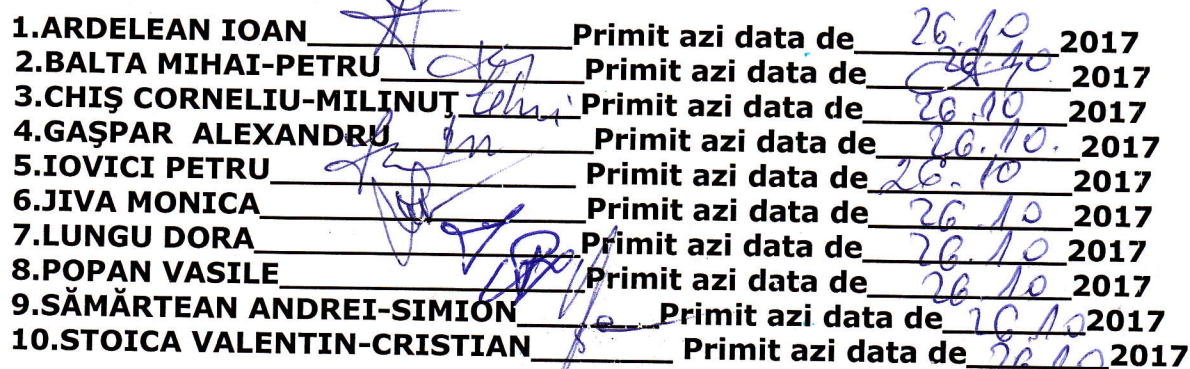 1.ARDELEAN IOAN____________________Primit azi data de 26.10 2017
2.BALTA MIHAI-PETRU____________________Primit azi data de 26.10 2017
3.CHIŞ CORNELIU-MILINUŢ__________Primit azi data de 26.10 2017
4.GAŞPAR ALEXANDRU________________Primit azi data de 26.10. 2017
5.IOVICI PETRU_______________________ Primit azi data de 26.10 2017
6.JIVA MONICA________________________Primit azi data de 26.10 2017
7.LUNGU DORA________________________Primit azi data de 26.10 2017
8.POPAN VASILE_______________________Primit azi data de 26.10 2017
9.SĂMĂRTEAN ANDREI-SIMION__________Primit azi data de 26.10 2017
10.STOICA VALENTIN-CRISTIAN__________ Primit azi data de 26.10 2017